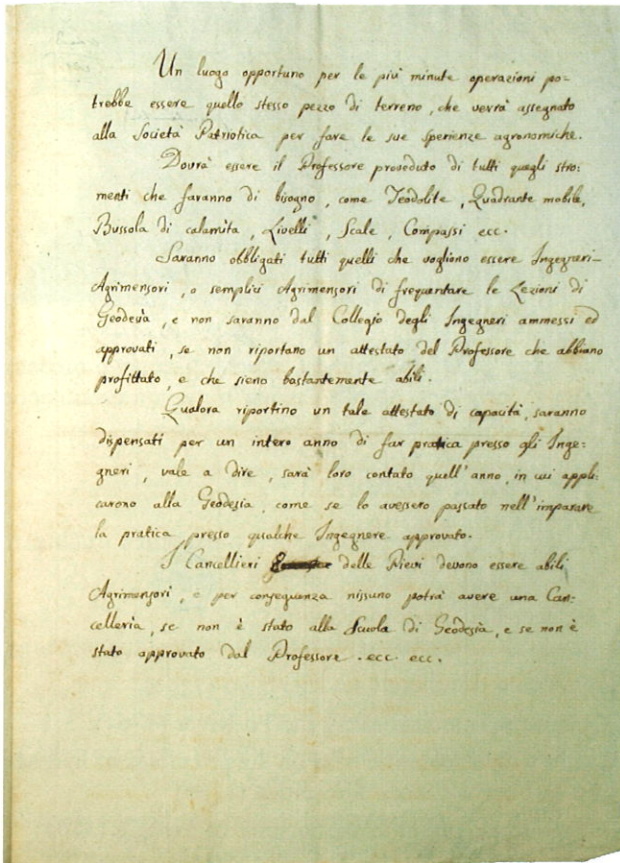 Un luogo opportuno per le più minute operazioni po=
trebbe essere quello stesso pezzo di terreno, che verrà assegnato
alla Società Patriotica per fare le sue sperienze agronomiche.
Dovrà essere il Professore proveduto di tutti quegli stro=
menti che faranno di bisogno, come Teodolite, Quadrante mobile,
Bussola di calamita, Livelli, Scale, Compassi ecc.
Saranno obbligati tutti quelli che vogliono essere Ingegneri-
Agrimensori, o semplici Agrimensori di frequentare le Lezioni di
Geodesia, e non saranno dal Collegio degli Ingegneri ammessi ed
approvati, se non riportano un attestato del Professore che abbiano
profittato, e che sieno bastantemente abili.
Qualora riportino un tale attestato di capacità, saranno
dispensati per un intero anno di far pratica presso gli Inge=
gneri, vale a dire, sarà loro contato quell'anno, in cui appli=
carono alla Geodesia, come se lo avessero passato nell'imparare
la pratica presso qualche Ingegnere approvato.
I Cancellieri delle Pievi devono essere abili
Agrimensori, e per conseguenza nissuno potrà avere una Can=
celleria, se non è stato alla Scuola di Geodesia, e se non è
stato approvato dal Professore. ecc. ecc.